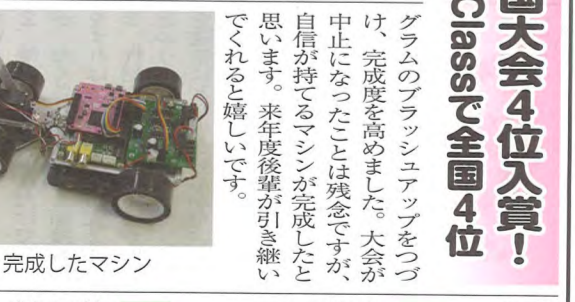 国大会4位入賞！
Classで全国4位
グラムのブラッシュアップをつづ
け、完成度を高めました。大会が
中止になったことは残念ですが、
自信が持てるマシンが完成したと
思います。来年度後輩が引き継い
でくれると嬉しいです。
完成したマシン